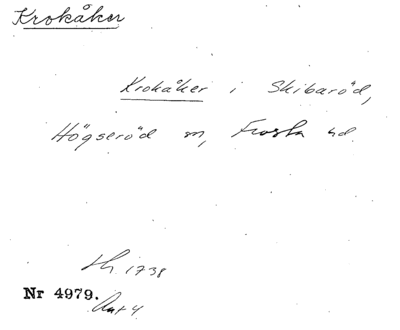 Krokåker
Krokåker i Skibaröd,
Högseröd sn, Frosta hd.
1738
Nr 4979.